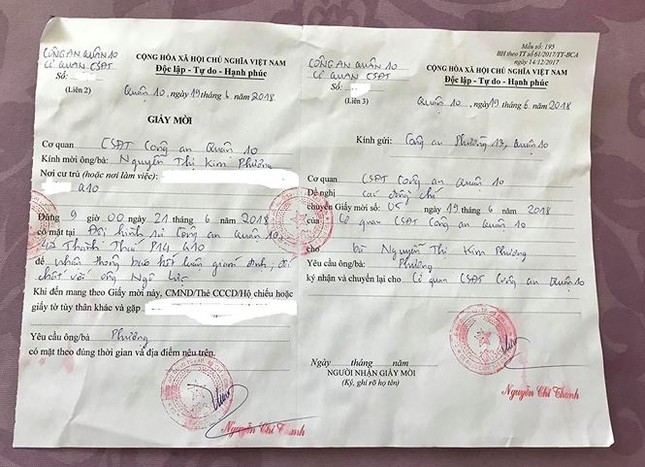 CÔNG AN QUẬN 10
CƠ QUAN CSĐT
Số:
(Liên 2)
CỘNG HÒA XÃ HỘI CHỦ NGHĨA VIỆT NAM
Độc lập - Tự do - Hạnh phúc
Quận 10, ngày 19 tháng 6 năm 2018
GIẤY MỜI
Cơ quan CSĐT Công an Quận 10
Kính mời ông/bà: Nguyễn Thị Kim Phượng
Nơi cư trú (hoặc nơi làm việc):
Q10
Đúng 9 giờ 00 ngày 21 tháng 6 năm 2018
có mặt tại Đội hình sự Công an Quận 10
47 Thành Thái P14 Q10
để nhận thông báo kết luận giám định, đối
chất với ông Ngô
Khi đến mang theo Giấy mời này, CMND/Thẻ CCCD/Hộ chiếu hoặc
giấy tờ tùy thân khác và gặp
Yêu cầu ông/bà Phượng
có mặt theo đúng thời gian và địa điểm nêu trên.
Nguyễn Chí Thanh
Mẫu số: 195
BH theo TT số 61/2017/TT-BCA
ngày 14/12/2017
CÔNG AN QUẬN 10
CƠ QUAN CSĐT
Số:
(Liên 3)
CỘNG HÒA XÃ HỘI CHỦ NGHĨA VIỆT NAM
Độc lập - Tự do - Hạnh phúc
Quận 10, ngày 19 tháng 6 năm 2018
Kính gửi: Công an Phường 13, Quận 10
Cơ quan CSĐT Công an Quận 10
Đề nghị các đồng chí
chuyển Giấy mời số: 05 ngày 19 tháng 6 năm 2018
của Cơ quan CSĐT Công an Quận 10
cho bà Nguyễn Thị Kim Phượng
Yêu cầu ông/bà Phượng
ký nhận và chuyển lại cho Cơ quan CSĐT Công an Quận 10
Ngày tháng năm
NGƯỜI NHẬN GIẤY MỜI
(Ký, ghi rõ họ tên)
Nguyễn Chí Thanh